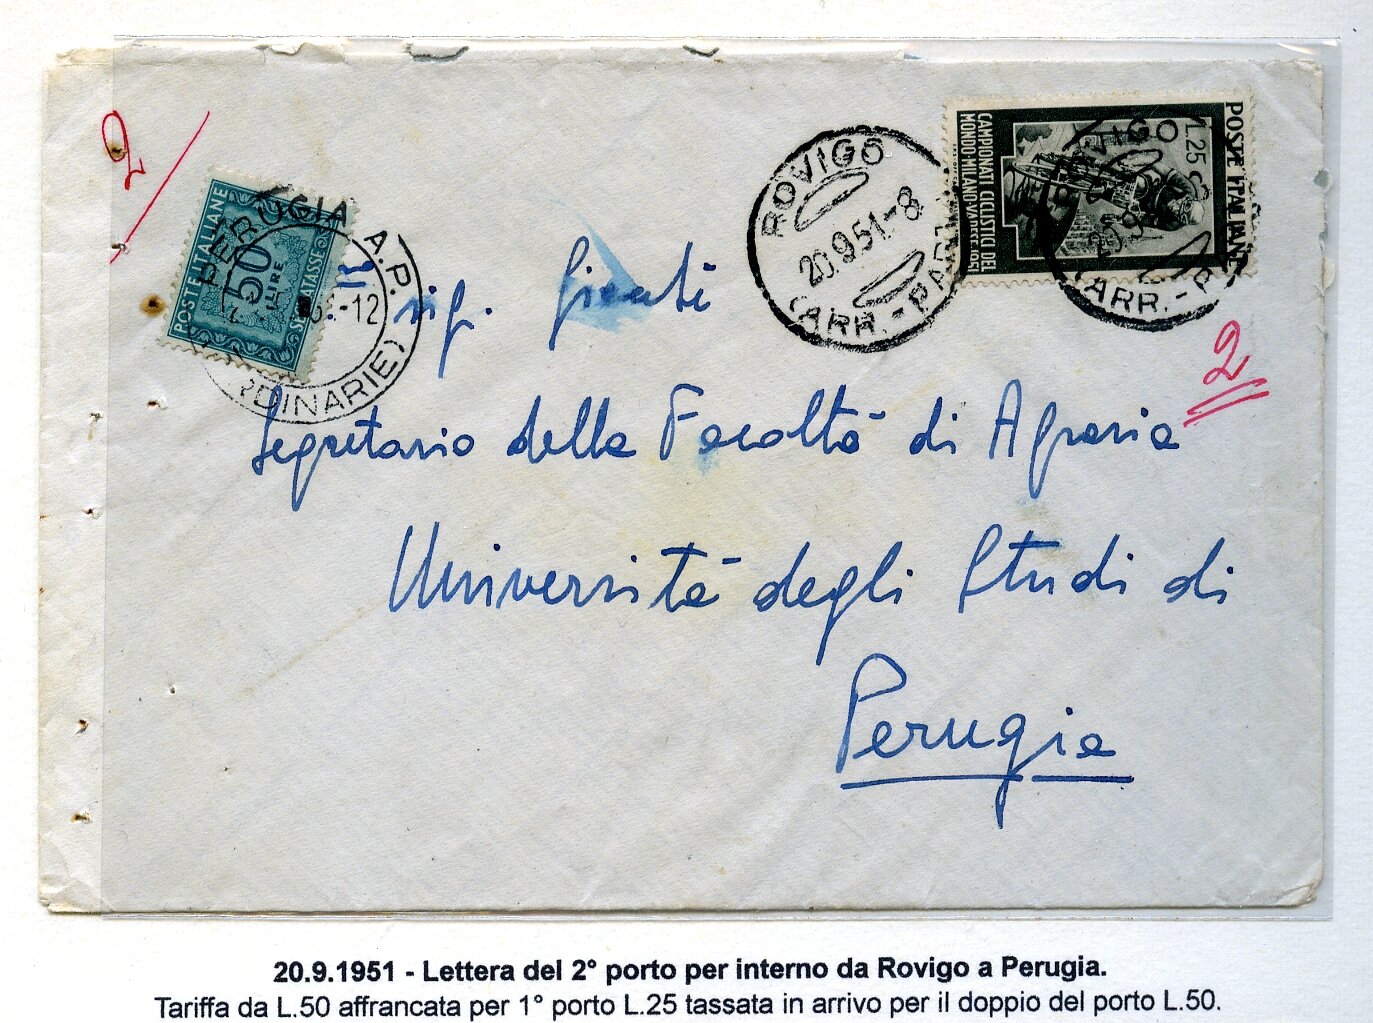 2
POSTE ITALIANE
50
LIRE
SEGNATASSE
PERUGIA A.P.
-12
DINARIE)
ROVIGO
20.9.51.-8
(ARR.-PAR
POSTE ITALIANE
L.25
CAMPIONATI CICLISTICI DEL
MONDO-MILANO-VARESE 1951
ROVIGO
ARR.-P
2
sig.
Segretario della Facoltà di Agraria
Università degli Studi di
Perugia
20.9.1951 - Lettera del 2° porto per interno da Rovigo a Perugia.
Tariffa da L.50 affrancata per 1° porto L.25 tassata in arrivo per il doppio del porto L.50.